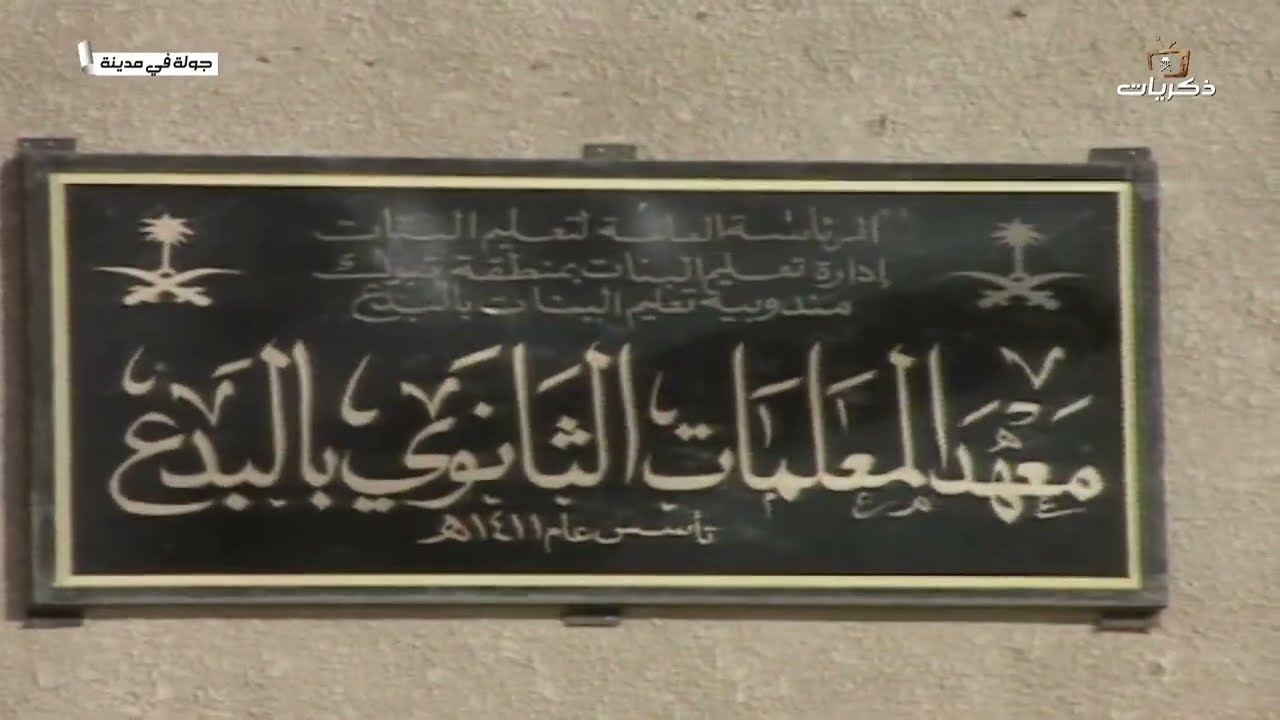 جولة في مدينة
ذكريات
الرئاسة العامة لتعليم البنات
إدارة تعليم البنات بمنطقة تبوك
مندوبية تعليم البنات بالبدع
معهد المعلمات الثانوي بالبدع
تأسس عام ١٤١١هـ